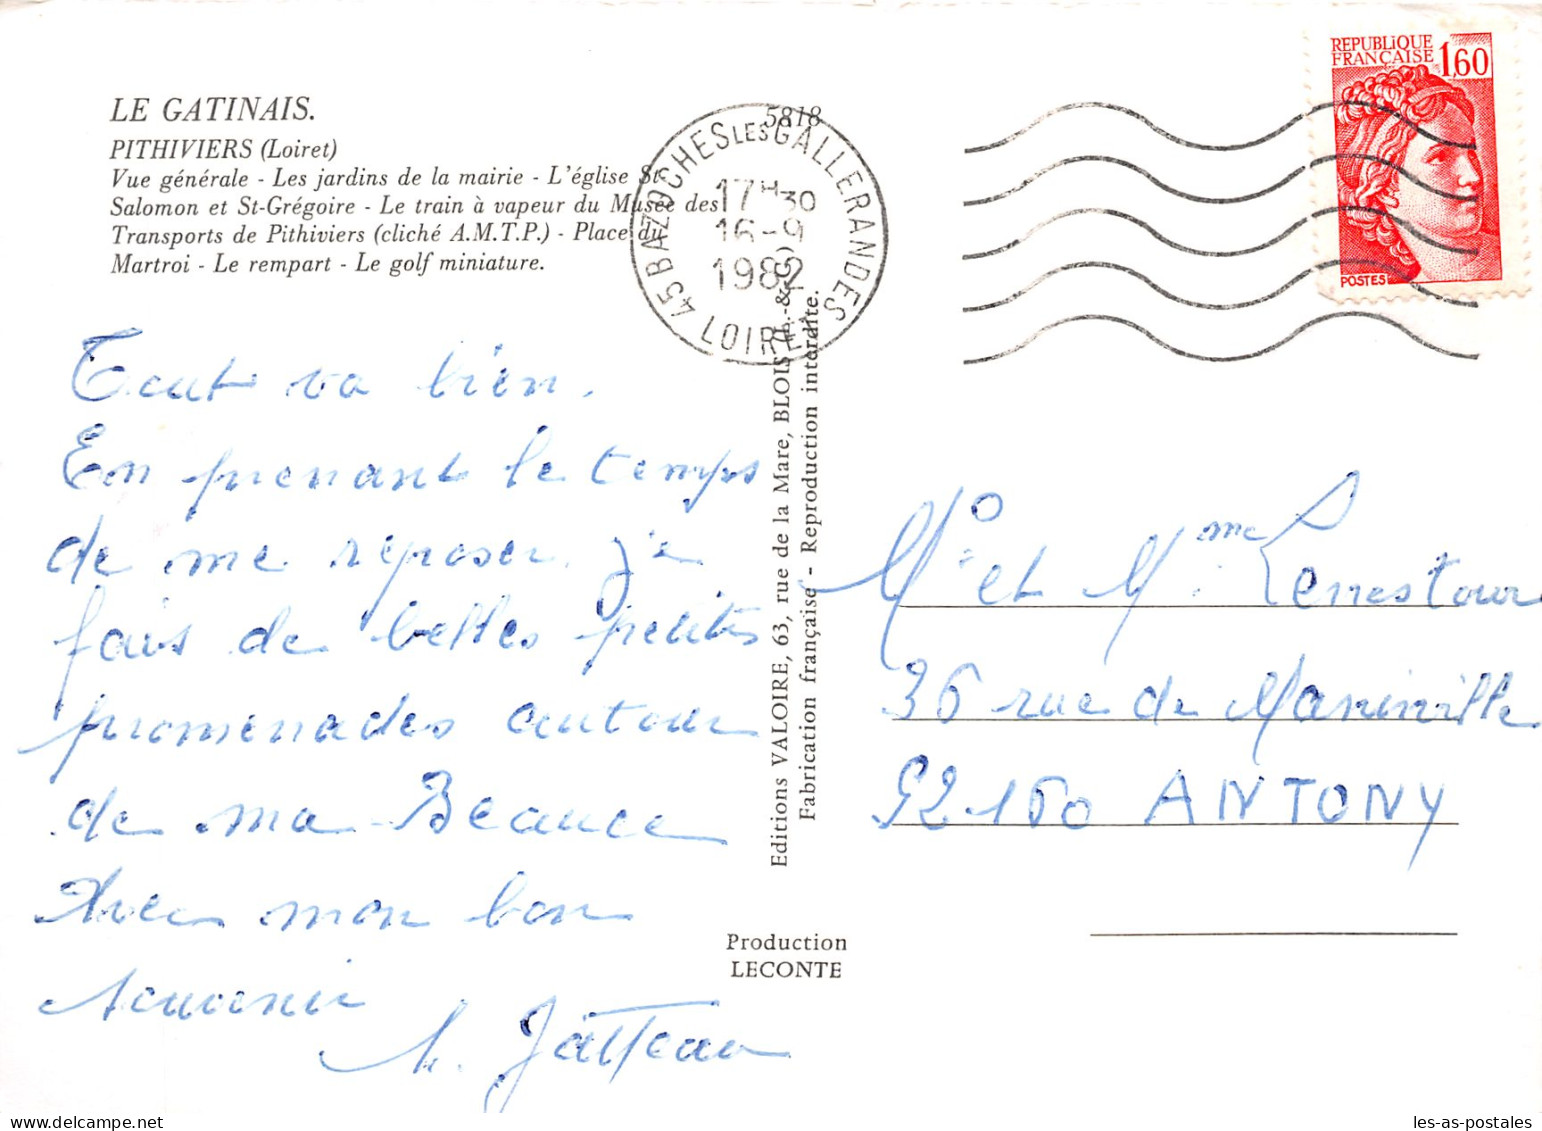 LE GATINAIS.
PITHIVIERS (Loiret)
Vue générale - Les jardins de la mairie - L'église St-
Salomon et St-Grégoire - Le train à vapeur du Musée des
Transports de Pithiviers (cliché A.M.T.P.) - Place du
Martroi - Le rempart - Le golf miniature.
5818
45 BAZOCHES LES GALLERANDES
17H30
16-9
1982
LOIRET
REPUBLIQUE
FRANÇAISE
1,60
POSTES
Tout va bien.
En prenant le temps
de me reposer j'ai
fais de belles petites
promenades autour
de ma Beauce
Avec mon bon
souvenir
Editions VALOIRE, 63, rue de la Mare, BLOIS (L.-&-C.)
Fabrication française - Reproduction interdite.
Production
LECONTE
Mr et Mme Lenestour
36 rue de
92160 ANTONY
les-as-postales